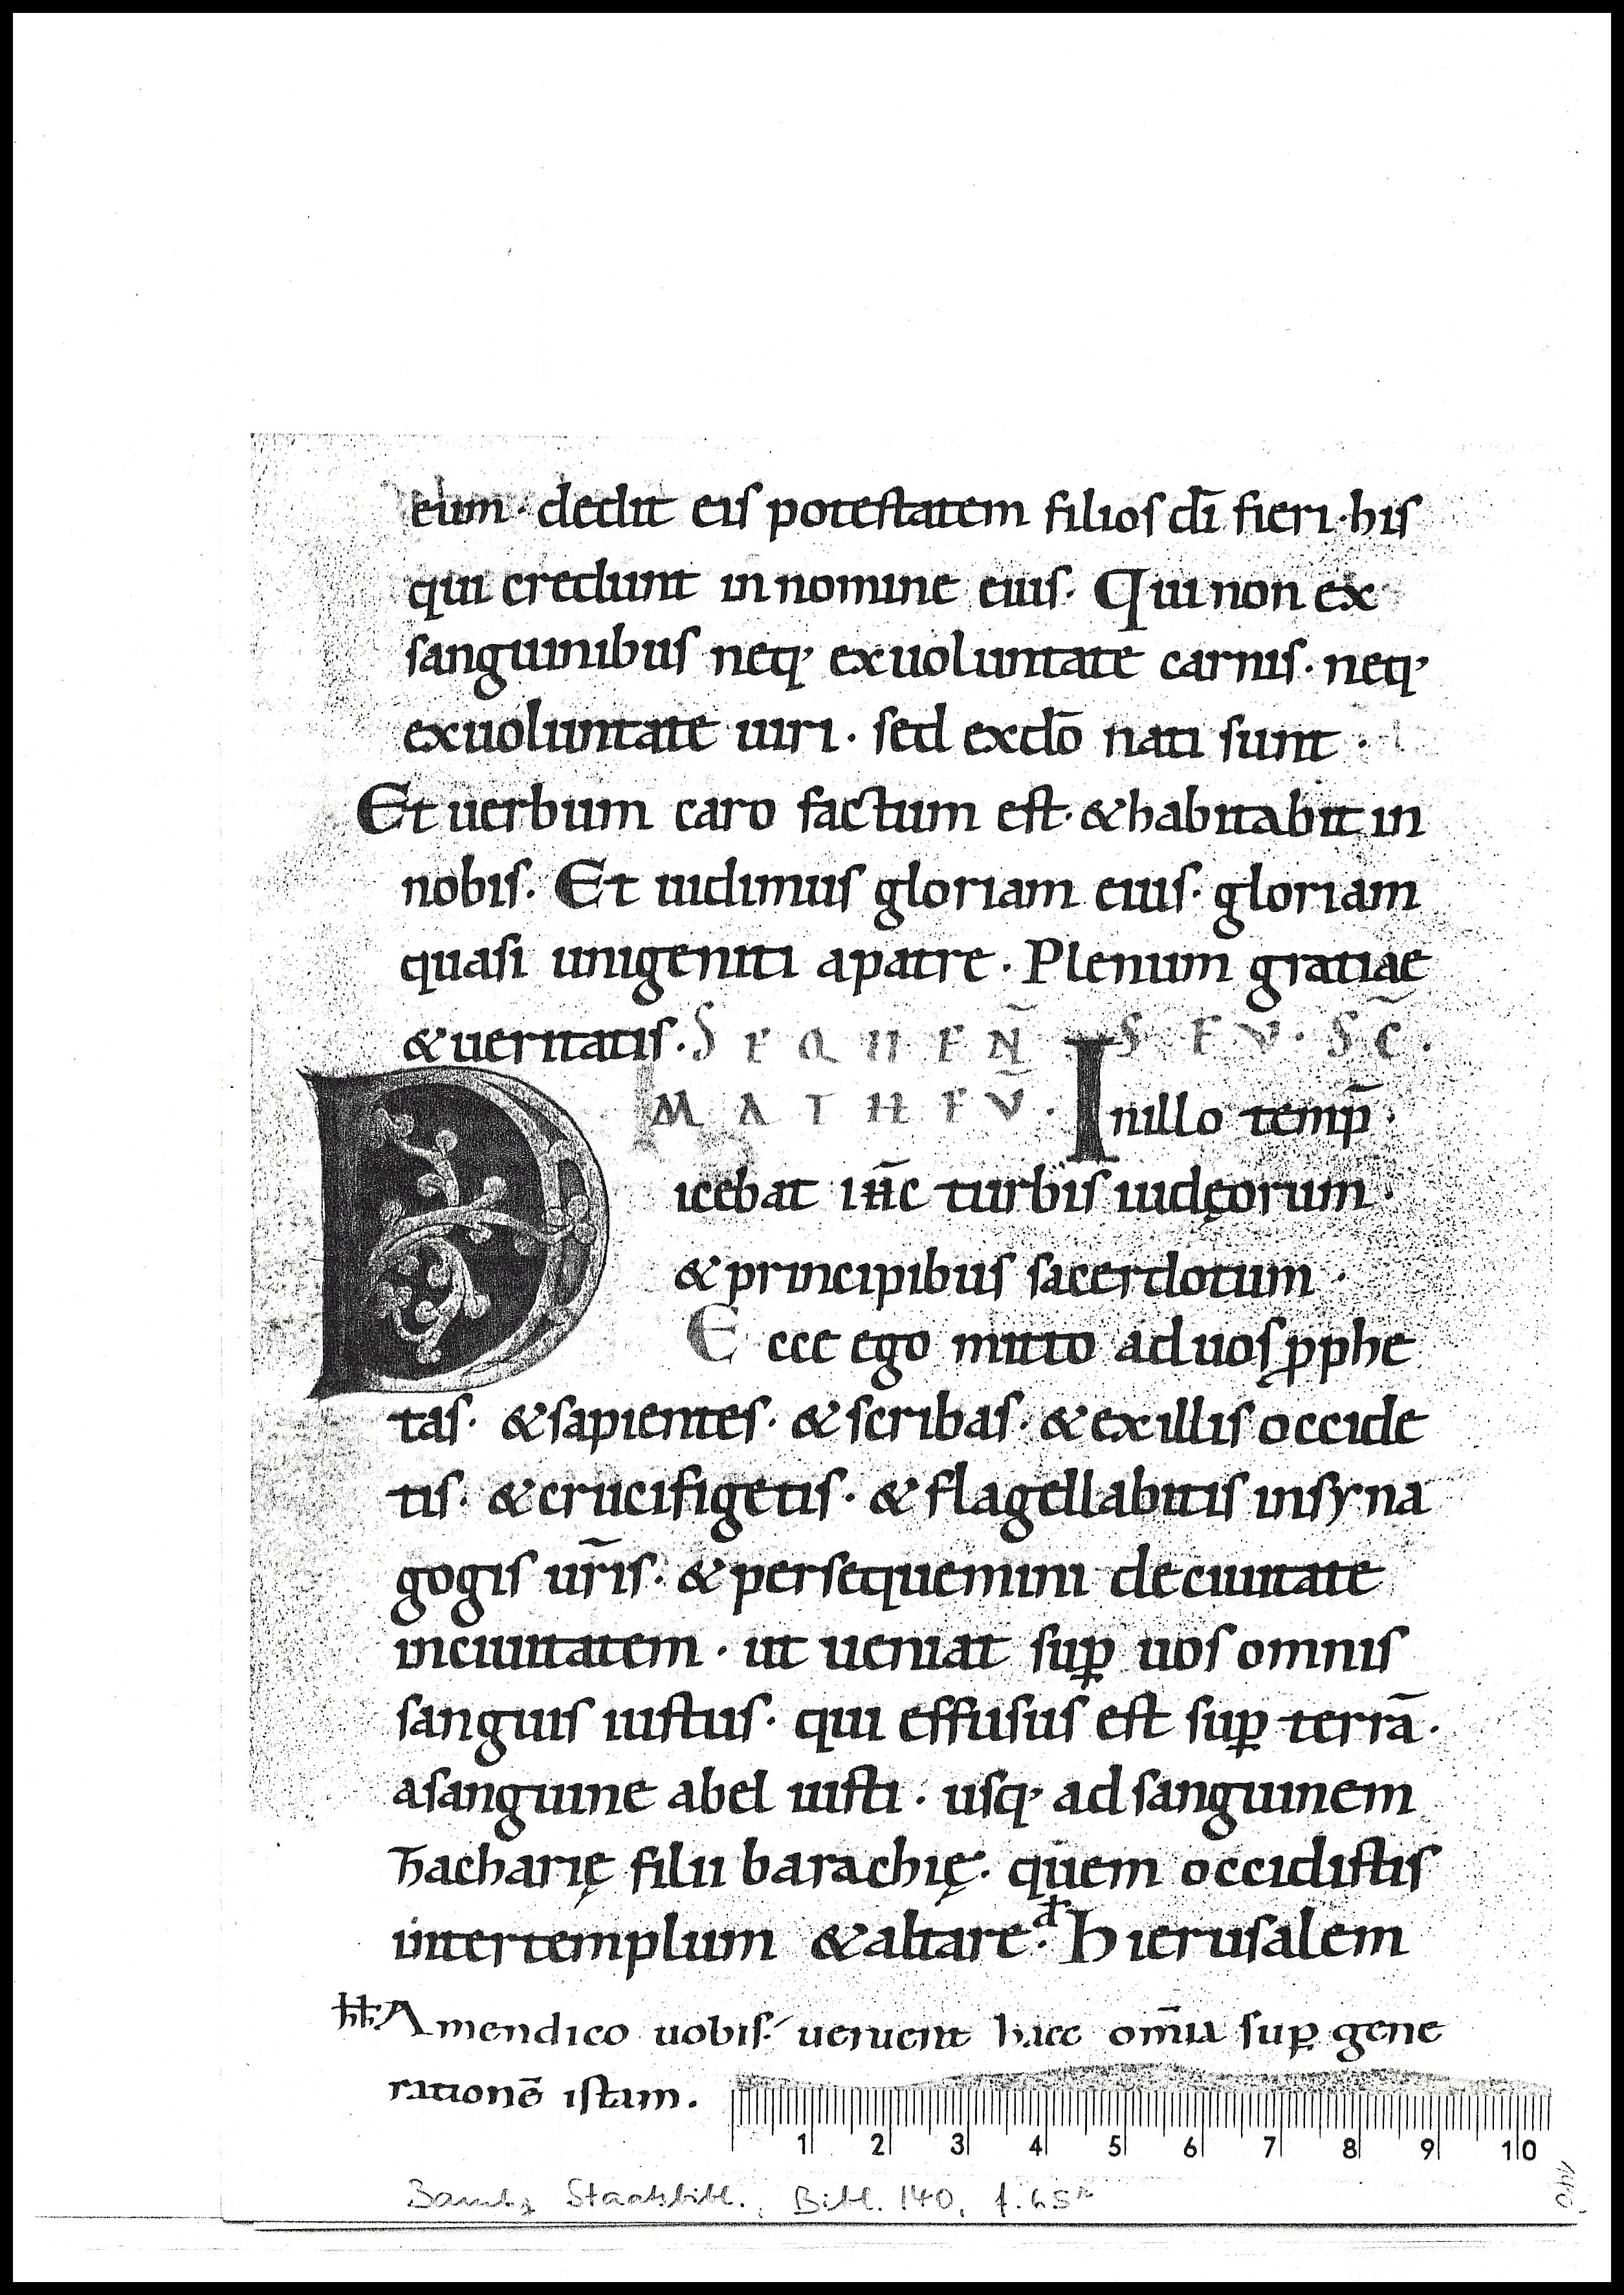 eum · dedit eis potestatem filios dī fieri · his
qui credunt in nomine eius · Qui non ex
sanguinibus neq· ex uoluntate carnis · neq·
ex uoluntate uiri · sed ex dō nati sunt ·
Et uerbum caro factum est · & habitabit in
nobis · Et uidimus gloriam eius · gloriam
quasi unigeniti a patre · Plenum gratiae
& ueritatis · SEQUEÑ S EV · SC̄ ·
MATHEŪ · In illo temp̄ ·
Dicebat ih̄c turbis iudęorum ·
& principibus sacerdotum ·
Ecce ego mitto ad uos ꝓphe
tas · & sapientes · & scribas · & ex illis occide
tis · & crucifigetis · & flagellabitis in syna
gogis ur̄is · & persequemini de ciuitate
in ciuitatem · ut ueniat suꝑ uos omnis
sanguis iustus · qui effusus est suꝑ terrā ·
a sanguine abel iusti · usq· ad sanguinem
zacharię filii barachię · quem occidistis
inter templum & altare · đ Hierusalem
ħħ Amen dico uobis · uenient haec om̄ia suꝑ gene
rationē istam ·
1 2 3 4 5 6 7 8 9 10
Bamberg Staatsbibl., Bibl. 140, f.
140